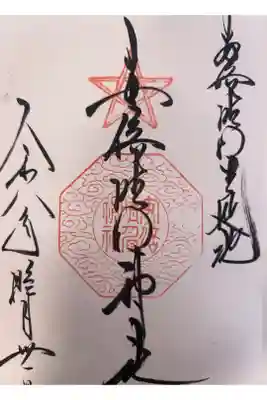 安倍晴明生誕地
安倍晴明神社
令和八年睦月